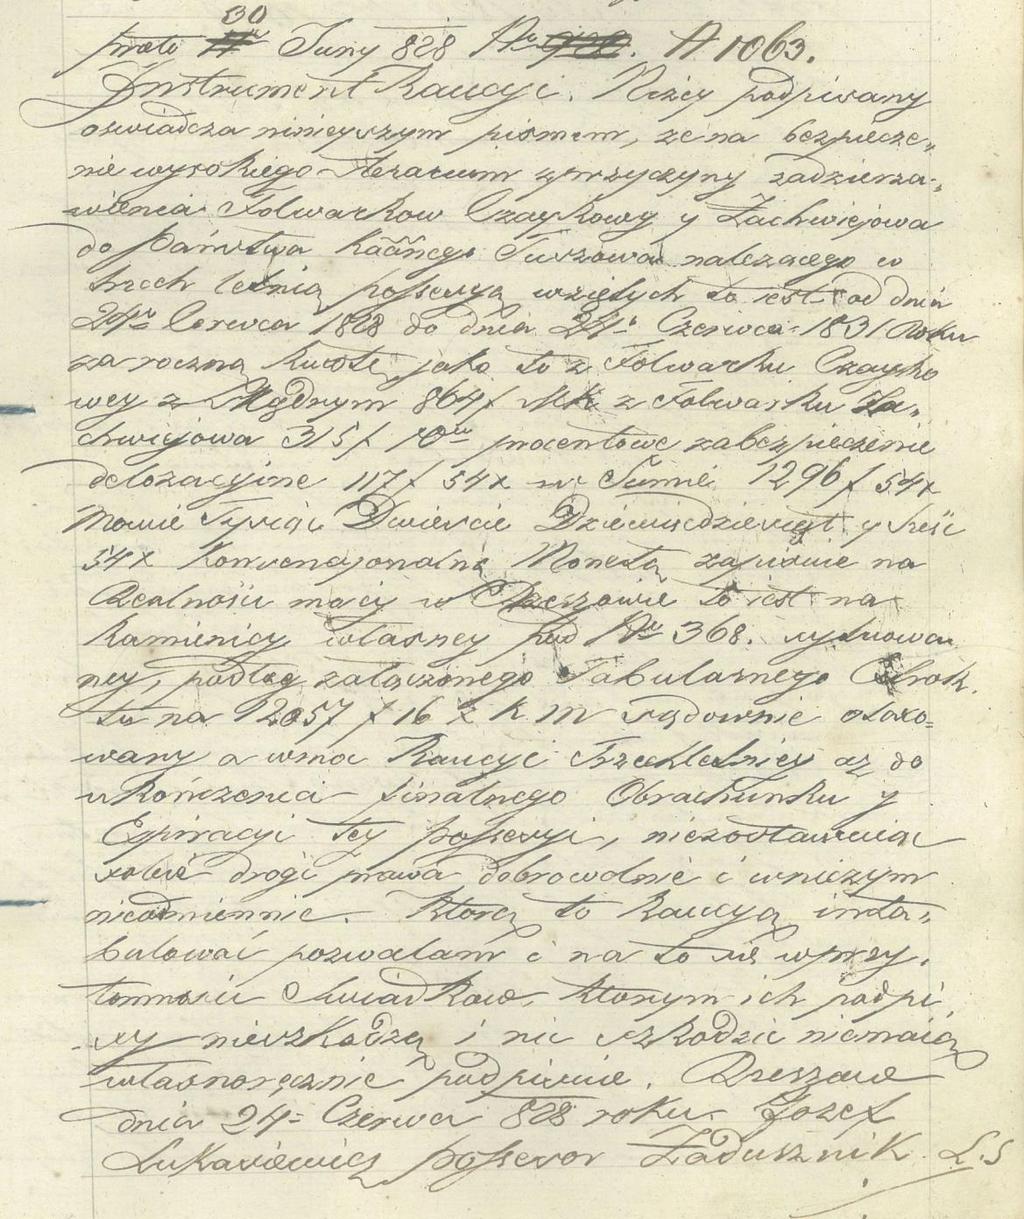 praeto 30 Juny 828 Nro A 1063.
Instrument Kaucyi. Niżey podpisany
oswiadcza ninieyszym pismem, że na bezpiecze-
nie wysokiego Aerarium z przyczyny zadzierza-
wienia Folwarkow Czaykowy y Zachwiejowa
do Państwa Kaãlnego Tuszowa należacego w
trzech letnią possessyą wziętych to iest od dnia
24go Czerwca 1828 do dnia 24go Czerwca 1831 Roku
za roczną kwotę jako to z Folwarku Czayko
wey z Młynym 864 f MK z Folwarku Za-
chwiejowa 315 f 10tu procentowe zabezpieczenie
delozacyine 117 f 54 x w Sumie 1296 f 54 x
mowie Tysiąc Dwiescie Dziewięćdziesiąt y sześć
54 x Konwencyonalną Monetą zapisuie na
Realności mojey w Rzeszowie to iest na
Kamienicy własney pod Nro 368. sytuowa
ney, podług załączonego Tabularnego Extrak
tu na 12057 f 16 x K M sądownie otaxo-
wany a wma Kaucyi Trzechletniey aż do
ukończenia finalnego Obrachunku y
Expiracyi tey possessyi, niezostawuiąc
sobie drogi prawa dobrowolnie i wniczym
nieodmiennie. Ktorą to Kaucyą inta-
bulować pozwalam i na to się w przy-
tomności Swiadkow, ktorym ich podpi
sy nieszkodzą i nic szkodzić niemaią
własnoręcznie podpisuie. Rzeszow
dnia 24 Czerwca 828 roku Jozef
Lukasiewicz possesor Zadusznik L.S